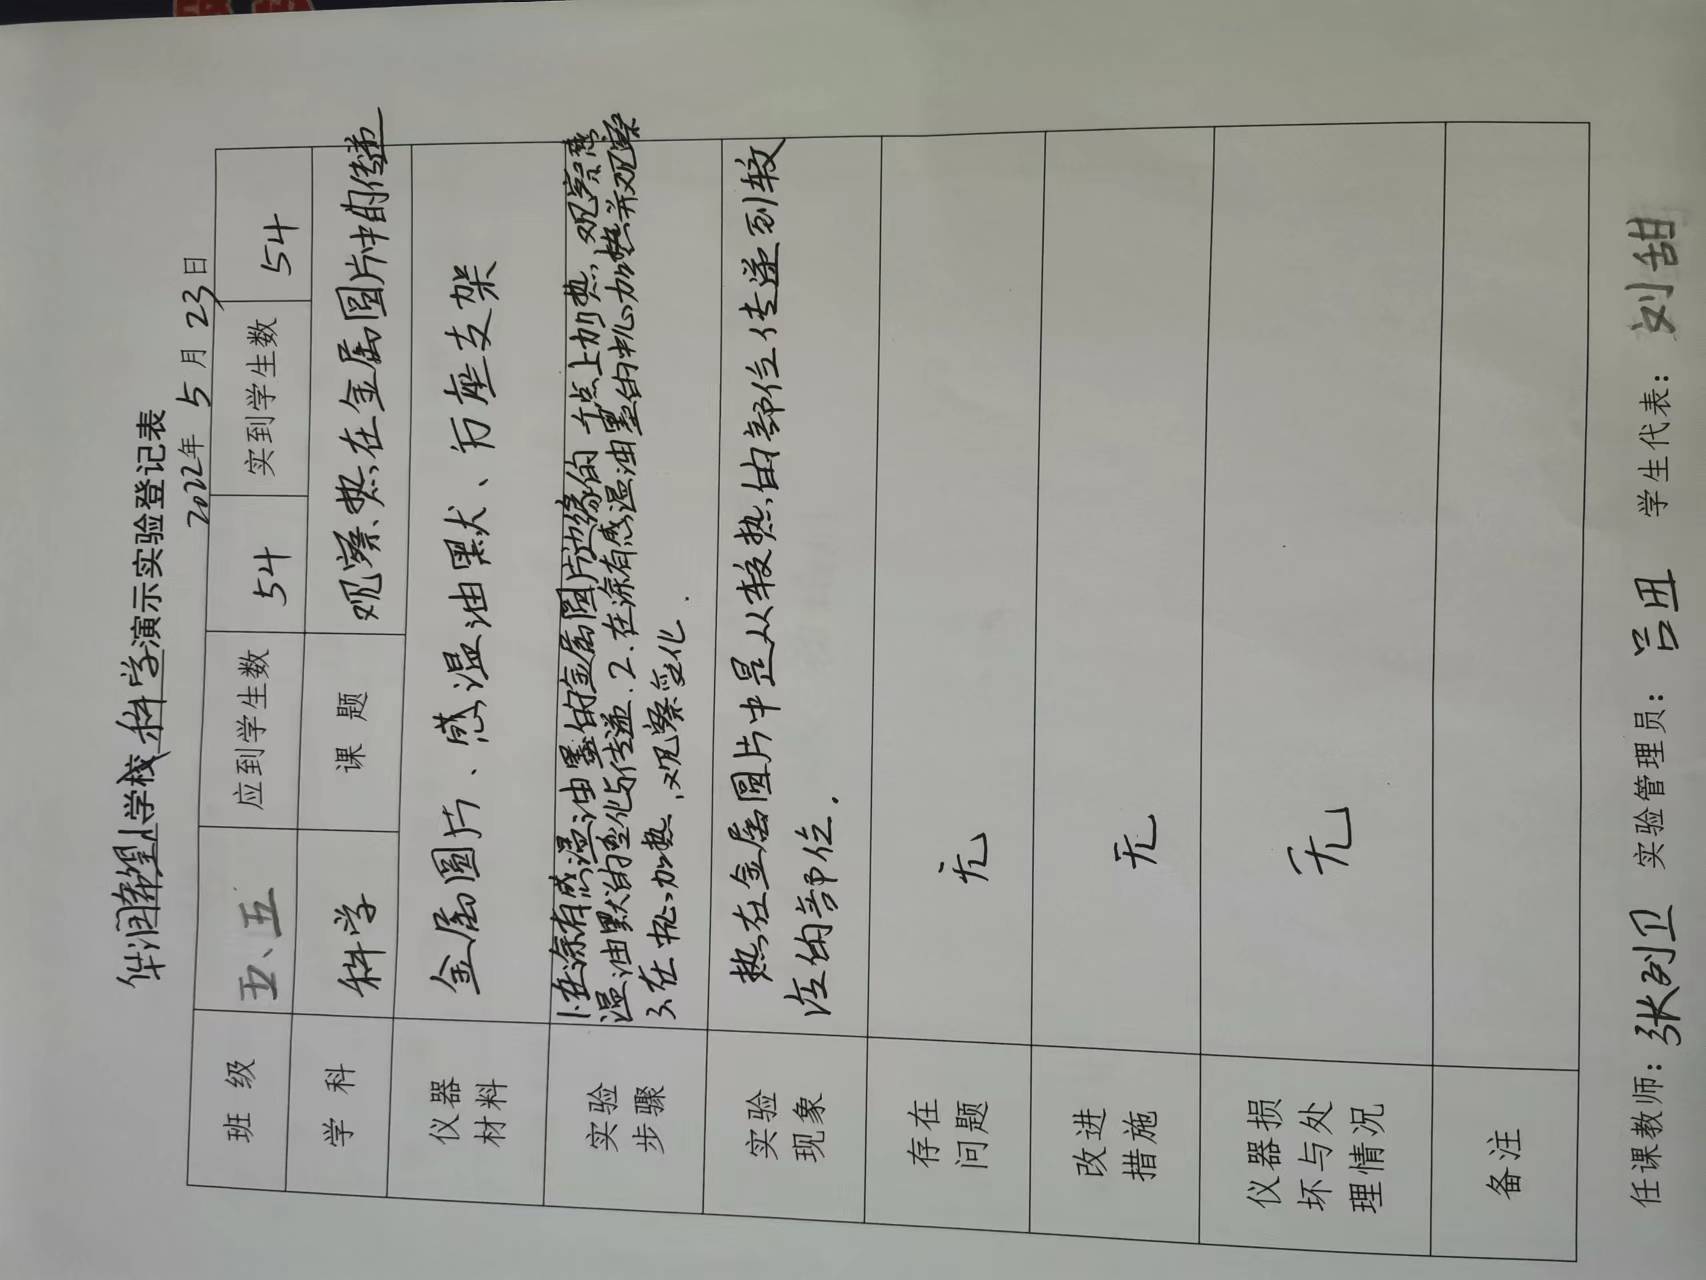 华润希望小学校科学演示实验登记表
2022年 5 月 23 日
班 级 五、五 应到学生数 54 实到学生数 54
学 科 科学 课 题 观察热在金属圆片中的传递
仪器材料 金属圆片、感温油默、方座支架
实验步骤 1.在涂有感温油墨的金属圆片边缘的一个点上加热,观察感
温油默的变化与传递.2.在涂有感温油墨的中心加热并观察
3、在中心加热,观察变化.
实验现象 热在金属圆片中是从较热的部位传递到较
冷的部位.
存在问题 无
改进措施 无
仪器损坏与处理情况 无
备注
任课教师:张列卫 实验管理员:吕丑 学生代表:刘甜